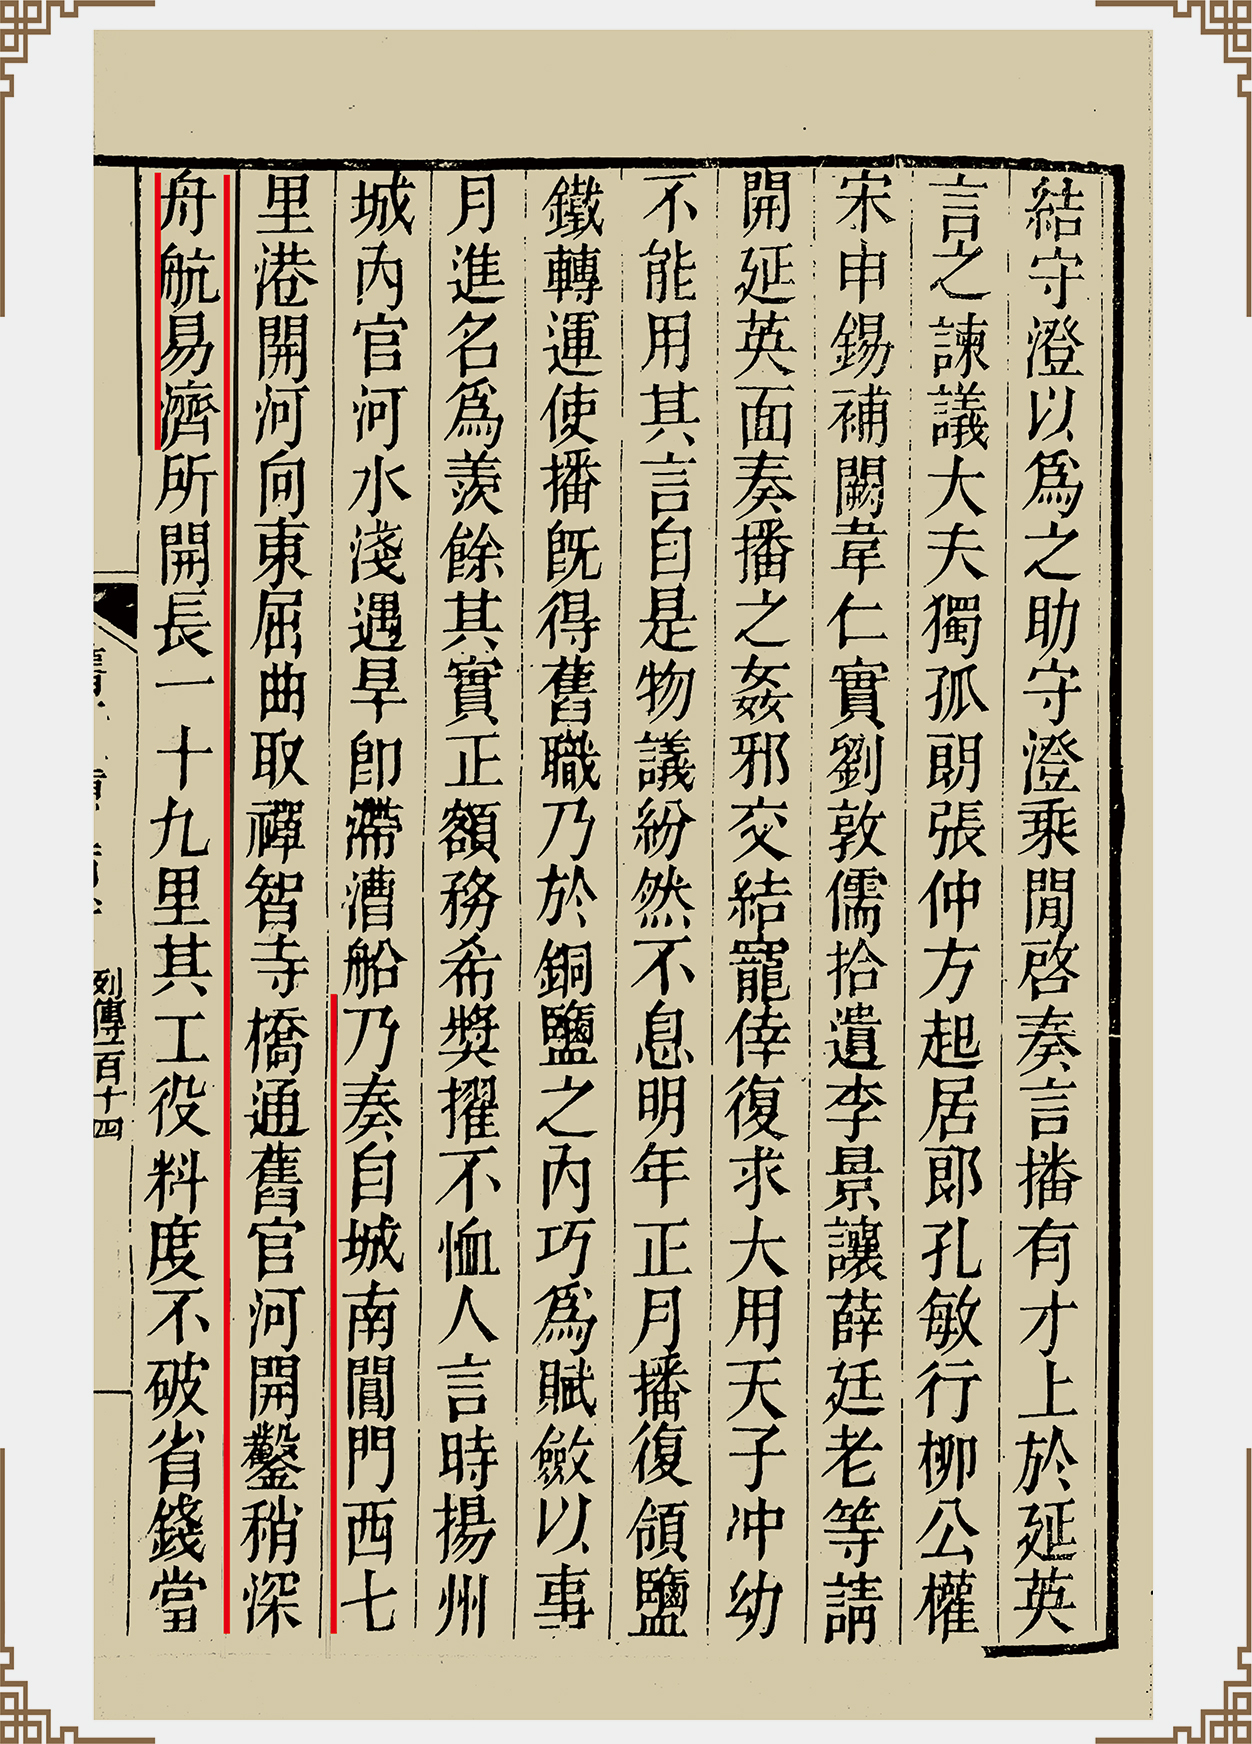 結守澄以爲之助守澄乘閒啓奏言播有才上於延英
言之諫議大夫獨孤朗張仲方起居郎孔敏行柳公權
宋申錫補闕韋仁實劉敦儒拾遺李景讓薛廷老等請
開延英面奏播之姦邪交結寵倖復求大用天子冲幼
不能用其言自是物議紛然不息明年正月播復領鹽
鐵轉運使播旣得舊職乃於銅鹽之內巧爲賦斂以事
月進名爲羨餘其實正額務希獎擢不恤人言時揚州
城內官河水淺遇旱卽滯漕船乃奏自城南閶門西七
里港開河向東屈曲取禪智寺橋通舊官河開鑿稍深
舟航易濟所開長一十九里其工役料度不破省錢當
列傳一百十四